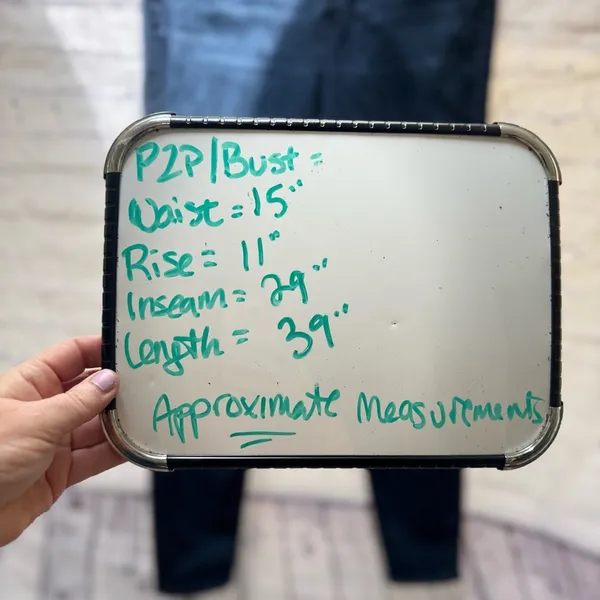 P2P/Bust =
Waist = 15"
Rise = 11"
Inseam = 29"
Length = 39"
Approximate Measurements